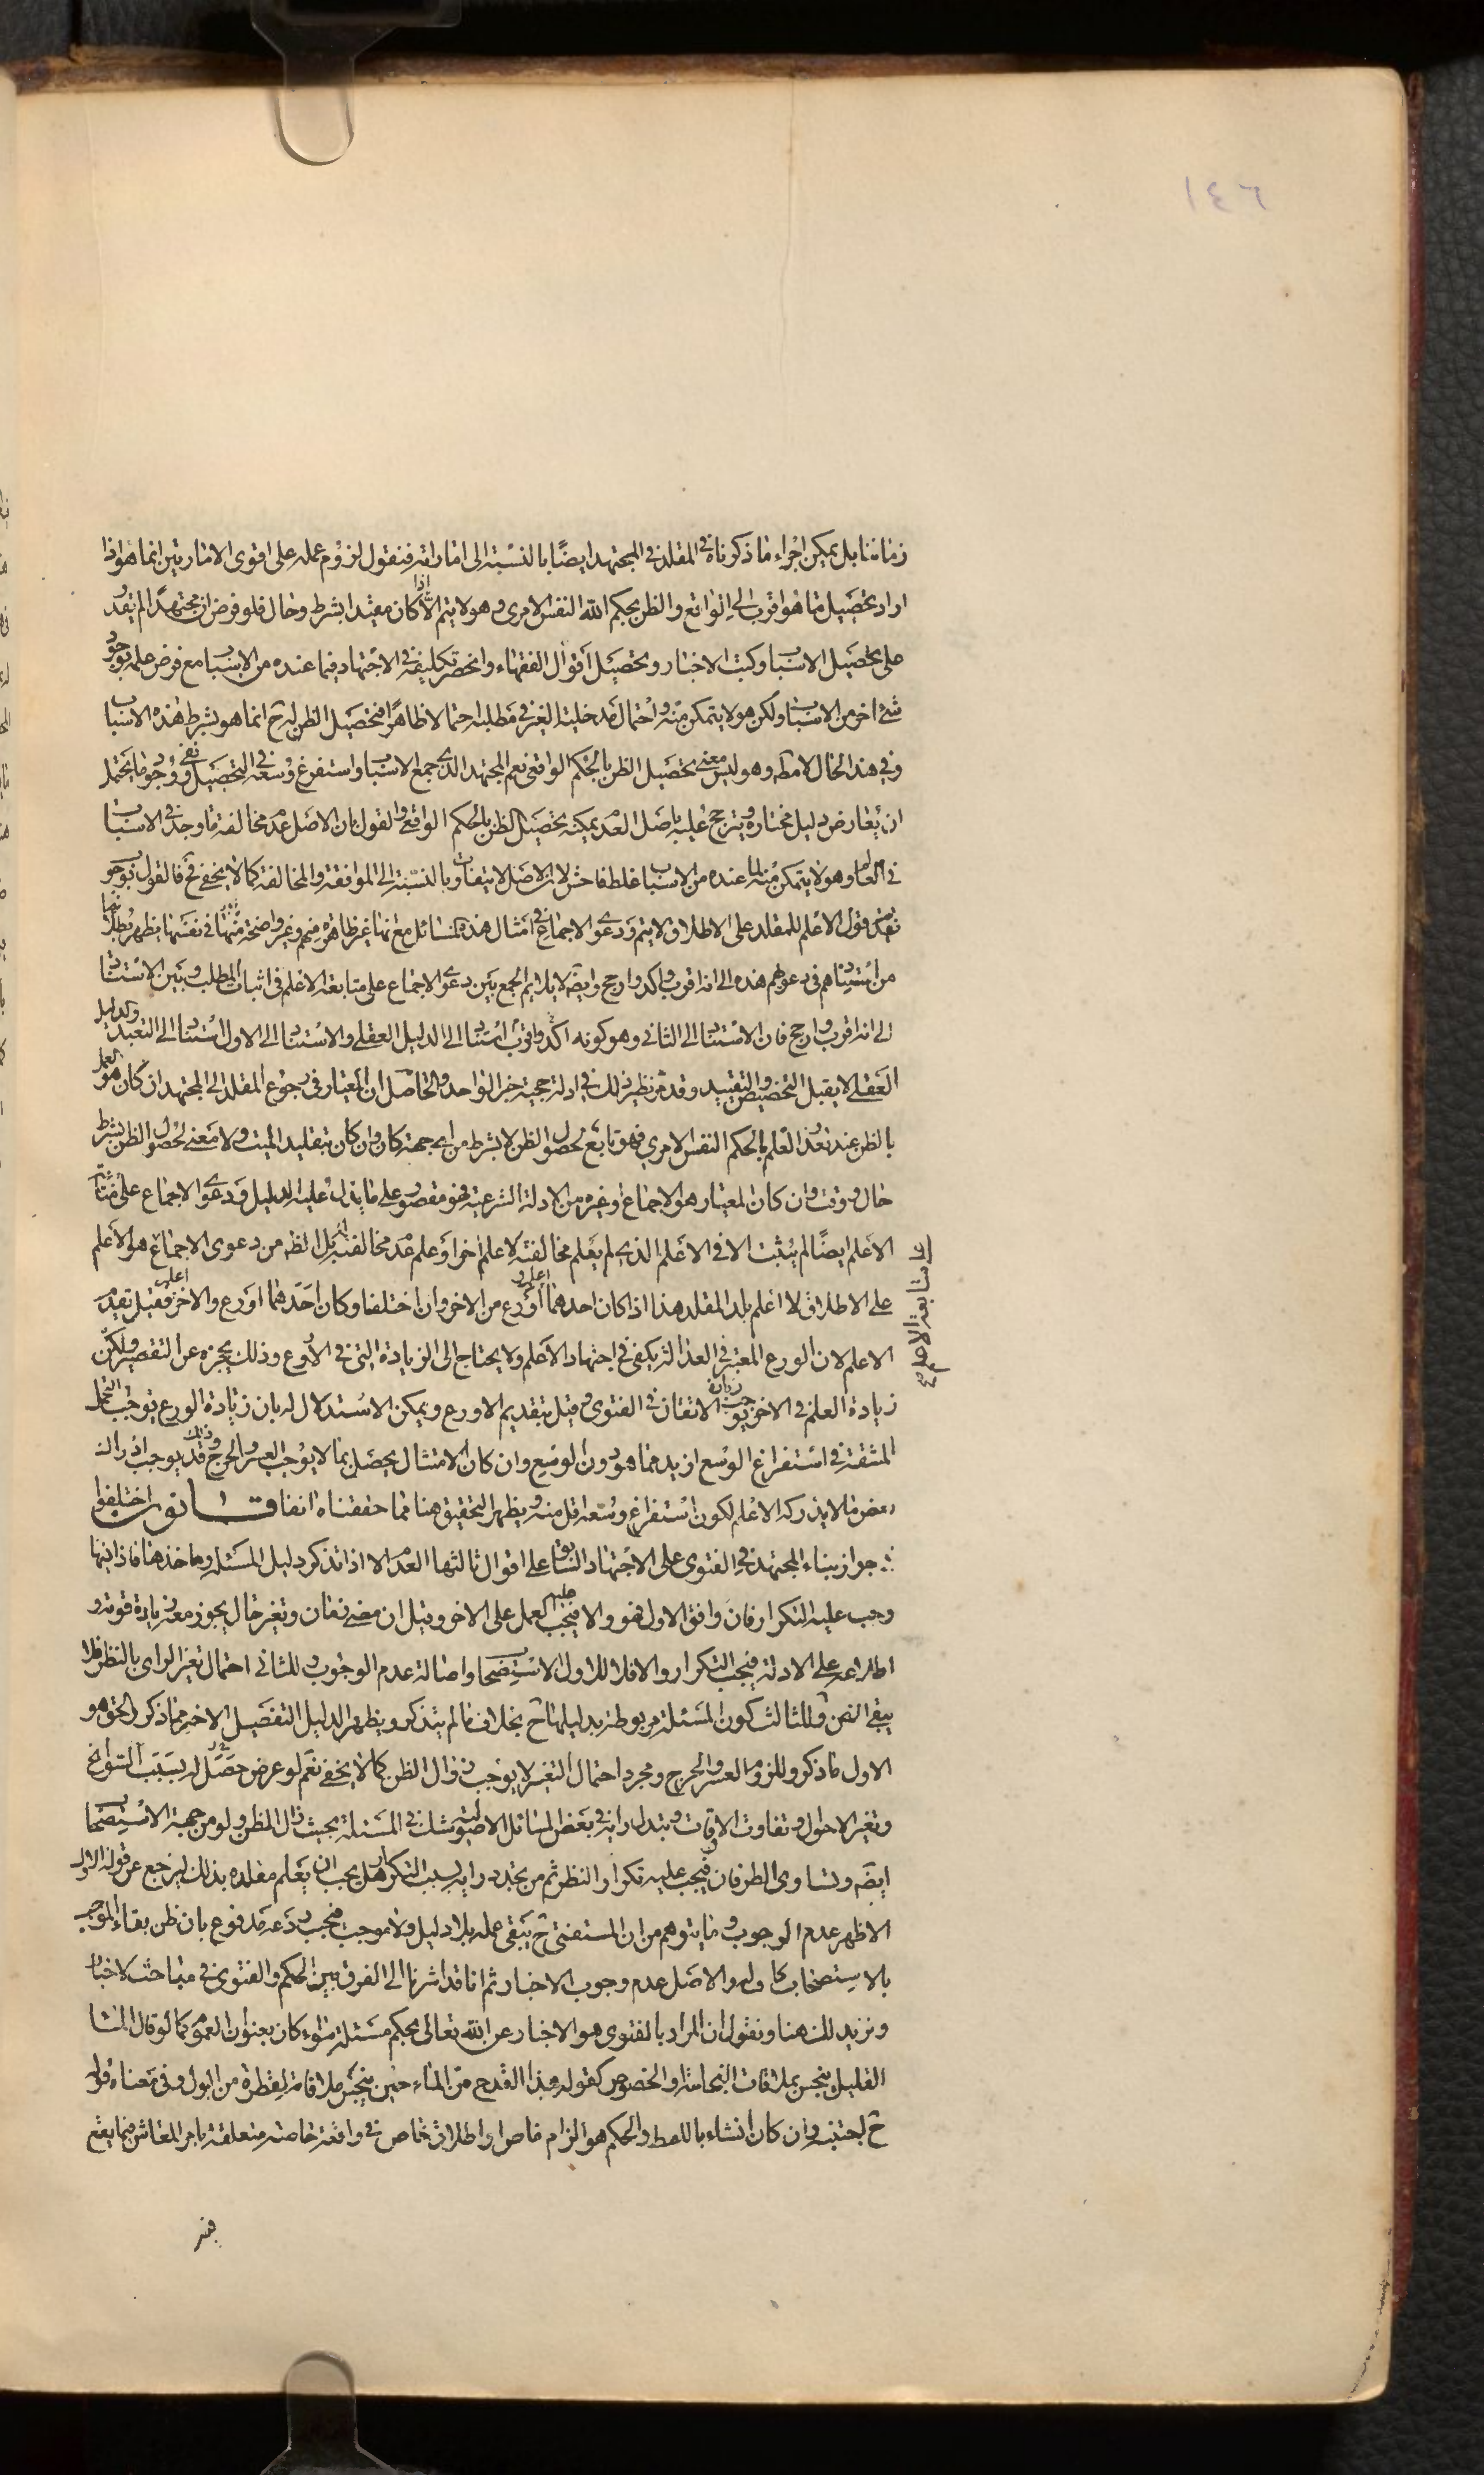 ١٤٦
زماننا بل يمكن اجراء ما ذكرناه في المقلد في المجتهد ايضًا بالنسبة الى اماراته فنقول لزوم عمله على اقوى الامارتين انما هو اذا
اراد تحصيل ما هو اقرب الى الواقع والظن بحكم الله النفس الامرى وهو لا يتم الا اذا كان مقيدا بشرط وحال فلو فرض ان مجتهدًا لم يقدر
على تحصيل الاسباب وكتب الاخبار وتحصيل اقوال الفقهاء وانحصر تكليفه في الاجتهاد فيما عنده من الاسباب مع فرض علمه بوجود
شئ اخر من الاسباب ولكن هو لا يتمكن منه واحتمال مدخلية الغير في مطلبه احتمالا ظاهرًا فتحصيل الظن له ح انما هو بشرط هذه الاسباب
وفي هذا الحال لا مطه وهو ليس معنى تحصيل الظن بالحكم الواقعي نعم المجتهد الذي جمع الاسباب واستفرغ وسعه في التحصيل ونفى وجود ما يحتمل
ان يعارض دليل مختاره ويترجح عليه باصل العدم يمكنه تحصيل الظن بالحكم الواقعي والقول بان الاصل عدم مخالفة ما وجد في الاسباب
في العالم وهو لا يتمكن منه لما عنده من الاسباب غلط فاحش لان الاصل لا يتفاوت بالنسبة الى الموافقة والمخالفة كما لا يخفى فح فالقول بوجوب
تقديم قول الاعلم للمقلد على الاطلاق لا يتم ودعوى الاجماع في امثال هذه المسائل مع انها غير ظاهرة منهم وغير واضحة منها في نفسها يظهر بطلانها
من استنادهم في دعويهم هذه الى انه اقرب واكد وارجح وايضه لا يلايم الجمع بين دعوى الاجماع على متابعة الاعلم في اثبات المطلب وبين الاستناد
الى انه اقرب وارجح فان الاستناد الى الثاني وهو كونه اكد واقرب استناد الى الدليل العقلي والاستناد الى الاول استناد الى التعبد والدليل
العقلي لا يقبل التخصيص والتقييد وقد مر نظير ذلك في ادلة حجية خبر الواحد والحاصل ان المعيار في رجوع المقلد الى المجتهد ان كان هو العمل
بالظن عند تعذر العلم بالحكم النفس الامري فهو تابع لحصول الظن لا بشرط من اي جهة كان وان كان بتقليد الميت ولا معنى لحصول الظن بشرط
حال ووقت وان كان المعيار هو الاجماع وغيره من الادلة الشرعية فهو مقصور على ما يدل عليه الدليل ودعوى الاجماع على متابعة
الاعلم ايضًا لم يثبت الا في الاعلم الذي لم يعلم مخالفته لاعلم اخر او علم عدم مخالفته له بل الظه من دعوى الاجماع هو الاعلم
على الاطلاق لا اعلم بلد المقلد هذا اذا كان احدهما اعلم واورع من الاخر وان اختلفا وكان احدهما اورع والاخر اعلم فقيل بتقديم
الاعلم لان الورع المعتبر في العدالة يكفي في اجتهاد الاعلم ولا يحتاج الى الزيادة التي في الاورع وذلك يحجزه عن التقصير ولكن
زيادة العلم في الاخر يوجب زيادة الاتقان في الفتوى وقيل بتقديم الاورع ويمكن الاستدلال له بان زيادة الورع يوجب التحمل
المشقة في استفراغ الوسع ازيد مما هو دون الوسع وان كان الامتثال يحصل بما لا يوجب العسر والحرج وذلك قد يوجب ادراك
بعض ما لا يدركه الاعلم لكون استفراغ وسعه اقل منه ويظهر التحقيق هنا مما حققناه انفا قانون اختلفوا
في جواز بناء المجتهد في الفتوى على الاجتهاد السابق على اقوال ثالثها العدم الا اذا تذكر دليل المسئلة وماخذها فاذا نسيها
وجب عليه التكرار فان وافق الاول فهو والا فيجب عليه العمل على الاخر وقيل ان مضى زمان وتغير حال يجوز معه زيادة قوته و
اطلاعه على الادلة فيجب التكرار والا فلا للاول الاستصحاب واصالة عدم الوجوب وللثاني احتمال تغير الراى بالنظر فلا
يبقى الظن وللثالث كون المسئلة مربوطة بدليلها ح بخلاف ما لم يتذكر ويظهر الدليل التفصيل الاخير مما ذكر والحق هو
الاول لما ذكر وللزوم العسر والحرج ومجرد احتمال التغيير لا يوجب زوال الظن كما لا يخفى نعم لو عرض حصل له بسبب السوانح
وتغير الاحوال وتفاوت الاوقات وتبدل رايه في بعض المسائل الاصولية شك في المسئلة بحيث زال المظنون ولو من جهة الاستصحاب
ايضه وتساوى الطرفان فيجب عليه تكرار النظر ثم من تجدد رايه بسبب التكرار هل يجب ان يعلم مقلده بذلك ليرجع عن قوله الاول
الاظهر عدم الوجوب وما يتوهم من ان المستفتي ح يبقى عمله بلا دليل ولا موجب فيجب ردعه مدفوع بان ظن بقاء الموجب
بالاستصحاب كاف له والاصل عدم وجوب الاخبار ثم انا قد اشرنا الى الفرق بين الحكم والفتوى في مباحث الاخبار
ونزيد لك هنا ونقول ان المراد بالفتوى هو الاخبار عن الله تعالى بحكم مسئلة سواء كان بعنوان العموم كما لو قال الماء
القليل ينجس بملاقات النجاسة او الخصوص كقوله هذا القدح من الماء حين ينجس ملاقاته لقطرة من البول وفي معناه قوله
ح اجتنبه وان كان انشاء باللفظ والحكم هو الزام خاص او اطلاق خاص في واقعة خاصة متعلقة بامر المعاش فيما يقع
على متابعة الاعلم
فيه